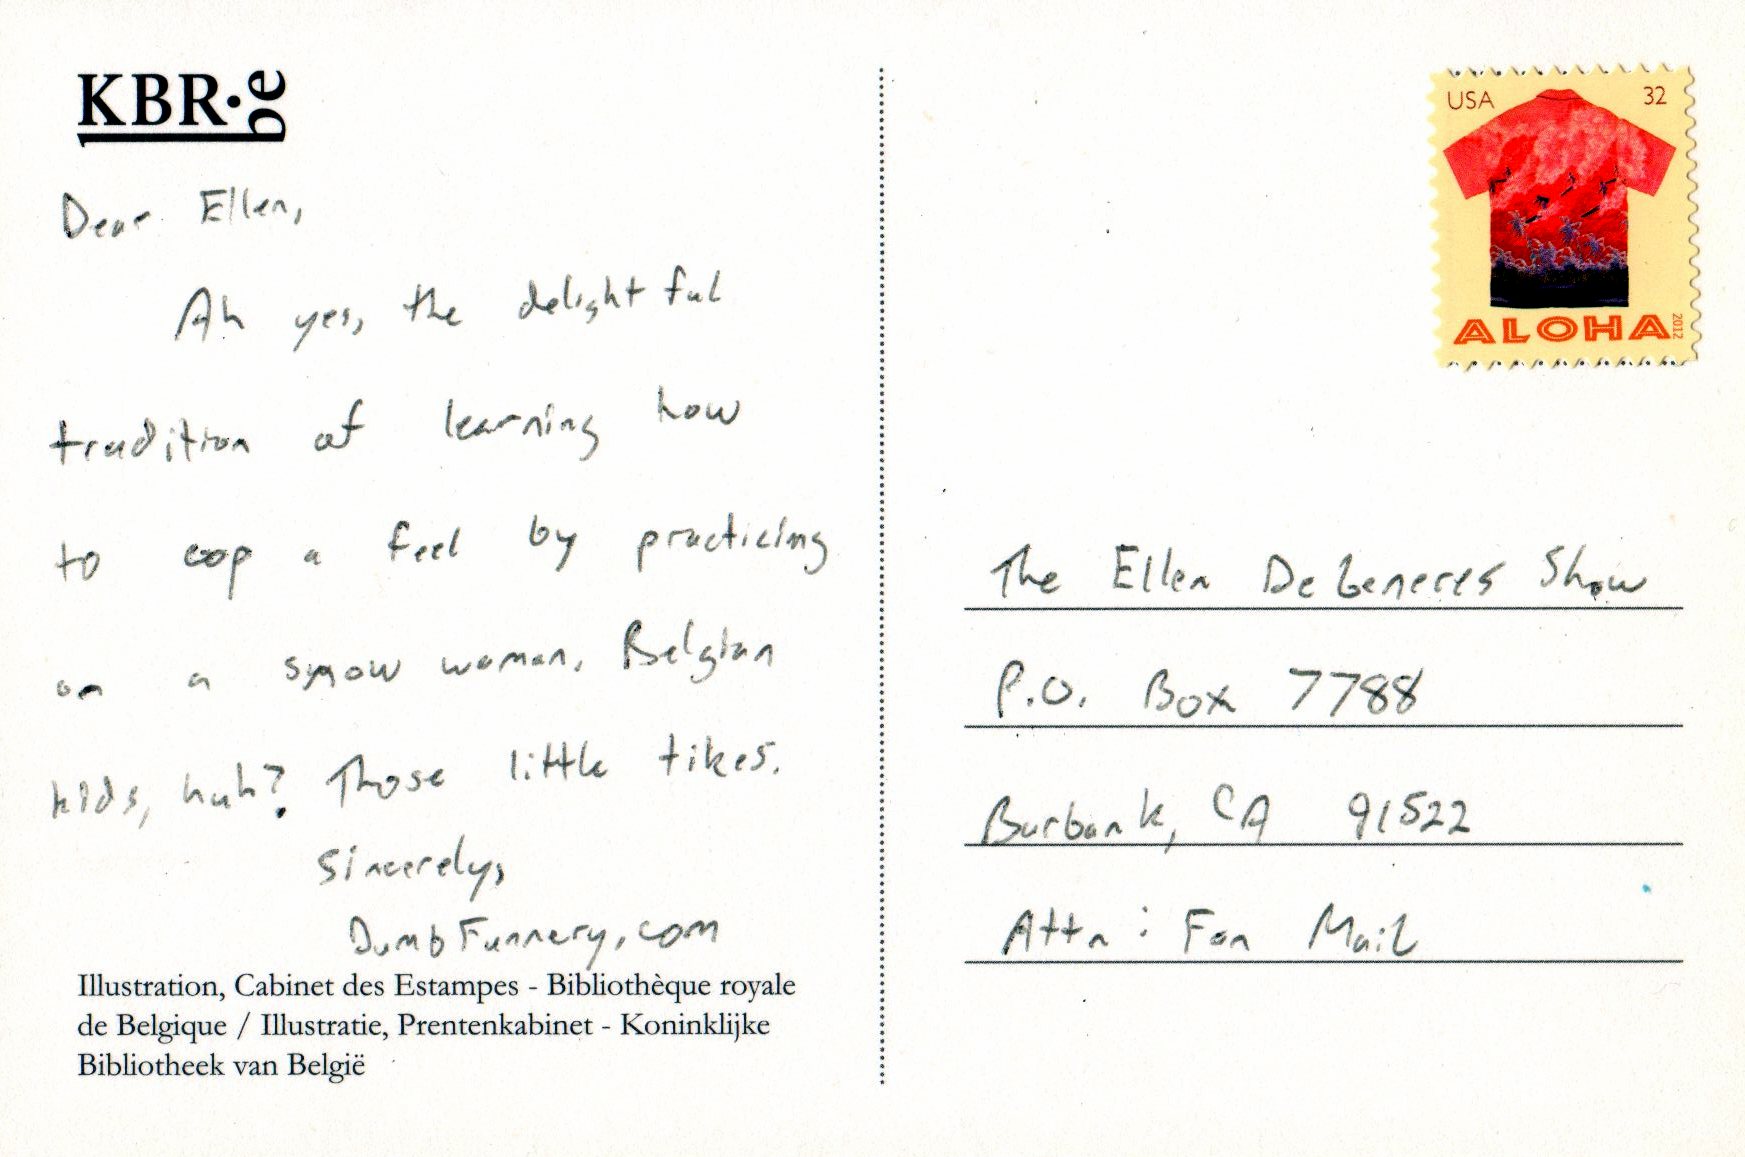 KBR.be
Dear Ellen,
Ah yes, the delightful
tradition of learning how
to cop a feel by practicing
on a snow woman. Belgian
kids, huh? Those little tikes.
Sincerely,
DumbFunnery.com
Illustration, Cabinet des Estampes - Bibliothèque royale
de Belgique / Illustratie, Prentenkabinet - Koninklijke
Bibliotheek van België
USA 32
ALOHA 2012
The Ellen DeGeneres Show
P.O. Box 7788
Burbank, CA 91522
Attn: Fan Mail